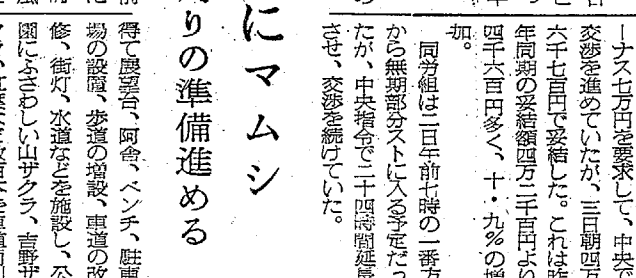 ーナス七万円を要求して、中央
交渉を進めていたが、三日朝四万
六千七百円で妥結した。これは昨
年同期の妥結額四万二千百円より
四千六百円多く、十・九％の増
加。
同労組は二日午前七時の一番方
から無期部分ストに入る予定だっ
たが、中央指令で二十四時間延長
させ、交渉を続けていた。
にマムシ
りの準備進める
得て展望台、阿舎、ベンチ、駐車
場の設置、歩道の増設、車道の改
修、街灯、水道などを施設し、公
園にふさわしい山ザクラ、吉野ザ